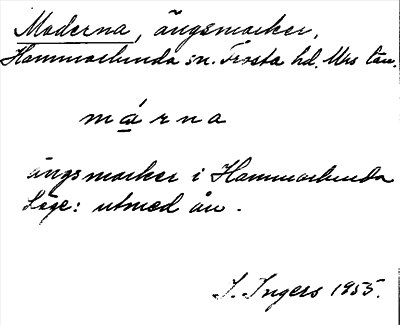 Maderna, ängsmarker,
Hammarlunda sn. Frosta hd. Mrs län.
márna
ängsmarker i Hammarlunda
Läge: utmed ån.
I. Ingers 1955.